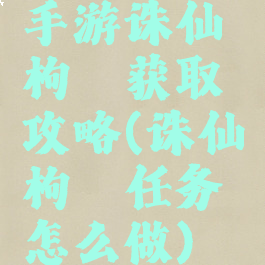 手游诛仙
枸 获取
攻略(诛仙
枸 任务
怎么做)